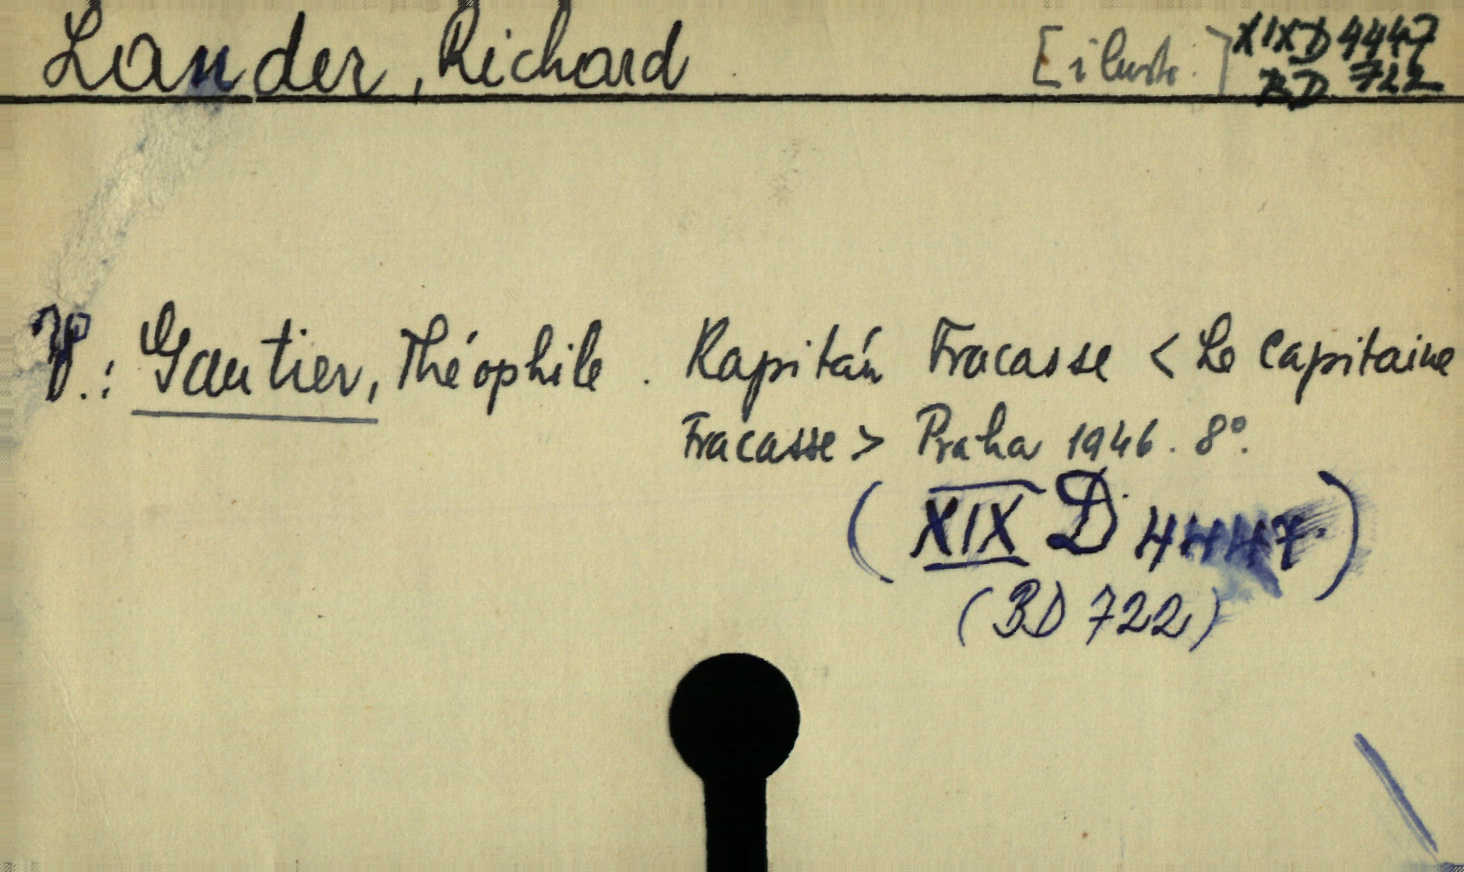 Lauder, Richard [ilustr.] XIX D 4447
BD 722
V.: Gautier, Théophile. Kapitán Fracasse < Le Capitaine
Fracasse > Praha 1946. 8°.
( XIX D 4447. )
(BD 722)